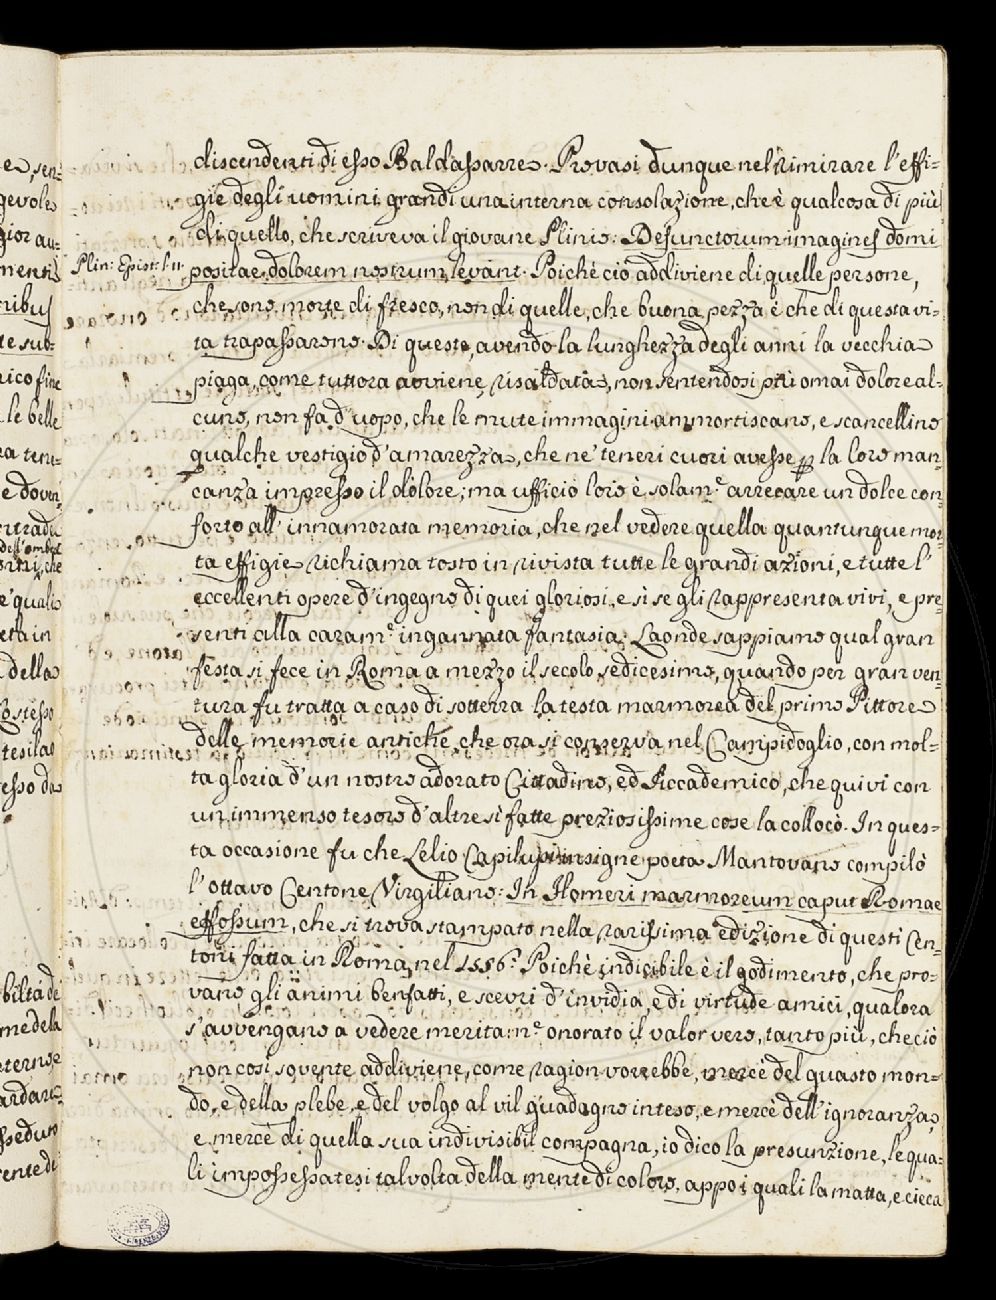 discendenti di esso Baldassarre. Provasi dunque nel rimirare l'effi-
gie degli uomini grandi una interna consolazione, che è qualcosa di più
di quello, che scriveva il giovane Plinio: Defunctorum imagines domi
Plin: Epist:
positae dolorem nostrum levant. Poichè ciò addiviene di quelle persone,
che sono morte di fresco, non di quelle, che buona pezza è che di questa vi-
ta trapassarono. Di queste, avendo la lunghezza degli anni la vecchia
piaga, come tuttora avviene, risaldata, non sentendosi più omai dolore al-
cuno, non fa d'uopo, che le mute immagini ammortiscano, e scancellino
qualche vestigio d'amarezza, che ne' teneri cuori avesse p la loro man-
canza impresso il dolore; ma ufficio loro è solam.e arrecare un dolce con-
forto all' innamorata memoria, che nel vedere quella quantunque mor-
ta effigie richiama tosto in rivista tutte le grandi azioni, e tutte l'
eccellenti opere d'ingegno di quei gloriosi, e sì se gli rappresenta vivi, e pre-
senti alla caram.e ingannata fantasia. Laonde sappiamo qual gran
festa si fece in Roma a mezzo il secolo sedicesimo, quando per gran ven-
tura fu tratta a caso di sotterra la testa marmorea del primo Pittore
delle memorie antiche, che ora si conserva nel Campidoglio, con mol-
ta gloria d'un nostro adorato Cittadino, ed Accademico, che quivi con
un immenso tesoro d'altre sì fatte preziosissime cose la collocò. In ques-
ta occasione fu che Lelio Capilupi insigne poeta Mantovano compilò
l'ottavo Centone Virgiliano: In Homeri marmoreum caput Romae
effossum, che si trova stampato nella rarissima edizione di questi Cen-
toni fatta in Roma, nel 1556. Poichè indicibile è il godimento, che pro-
vano gli animi benfatti, e scevri d'invidia, e di virtude amici, qualora
s'avvengano a vedere meritam.e onorato il valor vero, tanto più, che ciò
non così sovente addiviene, come ragion vorrebbe, mercè del guasto mon-
do, e della plebe, e del volgo al vil guadagno inteso, e mercè dell'ignoranza,
e mercè di quella sua indivisibil compagna, io dico la presunzione, le qua-
li impossessatesi talvolta della mente di coloro, appo i quali la matta, e cieca